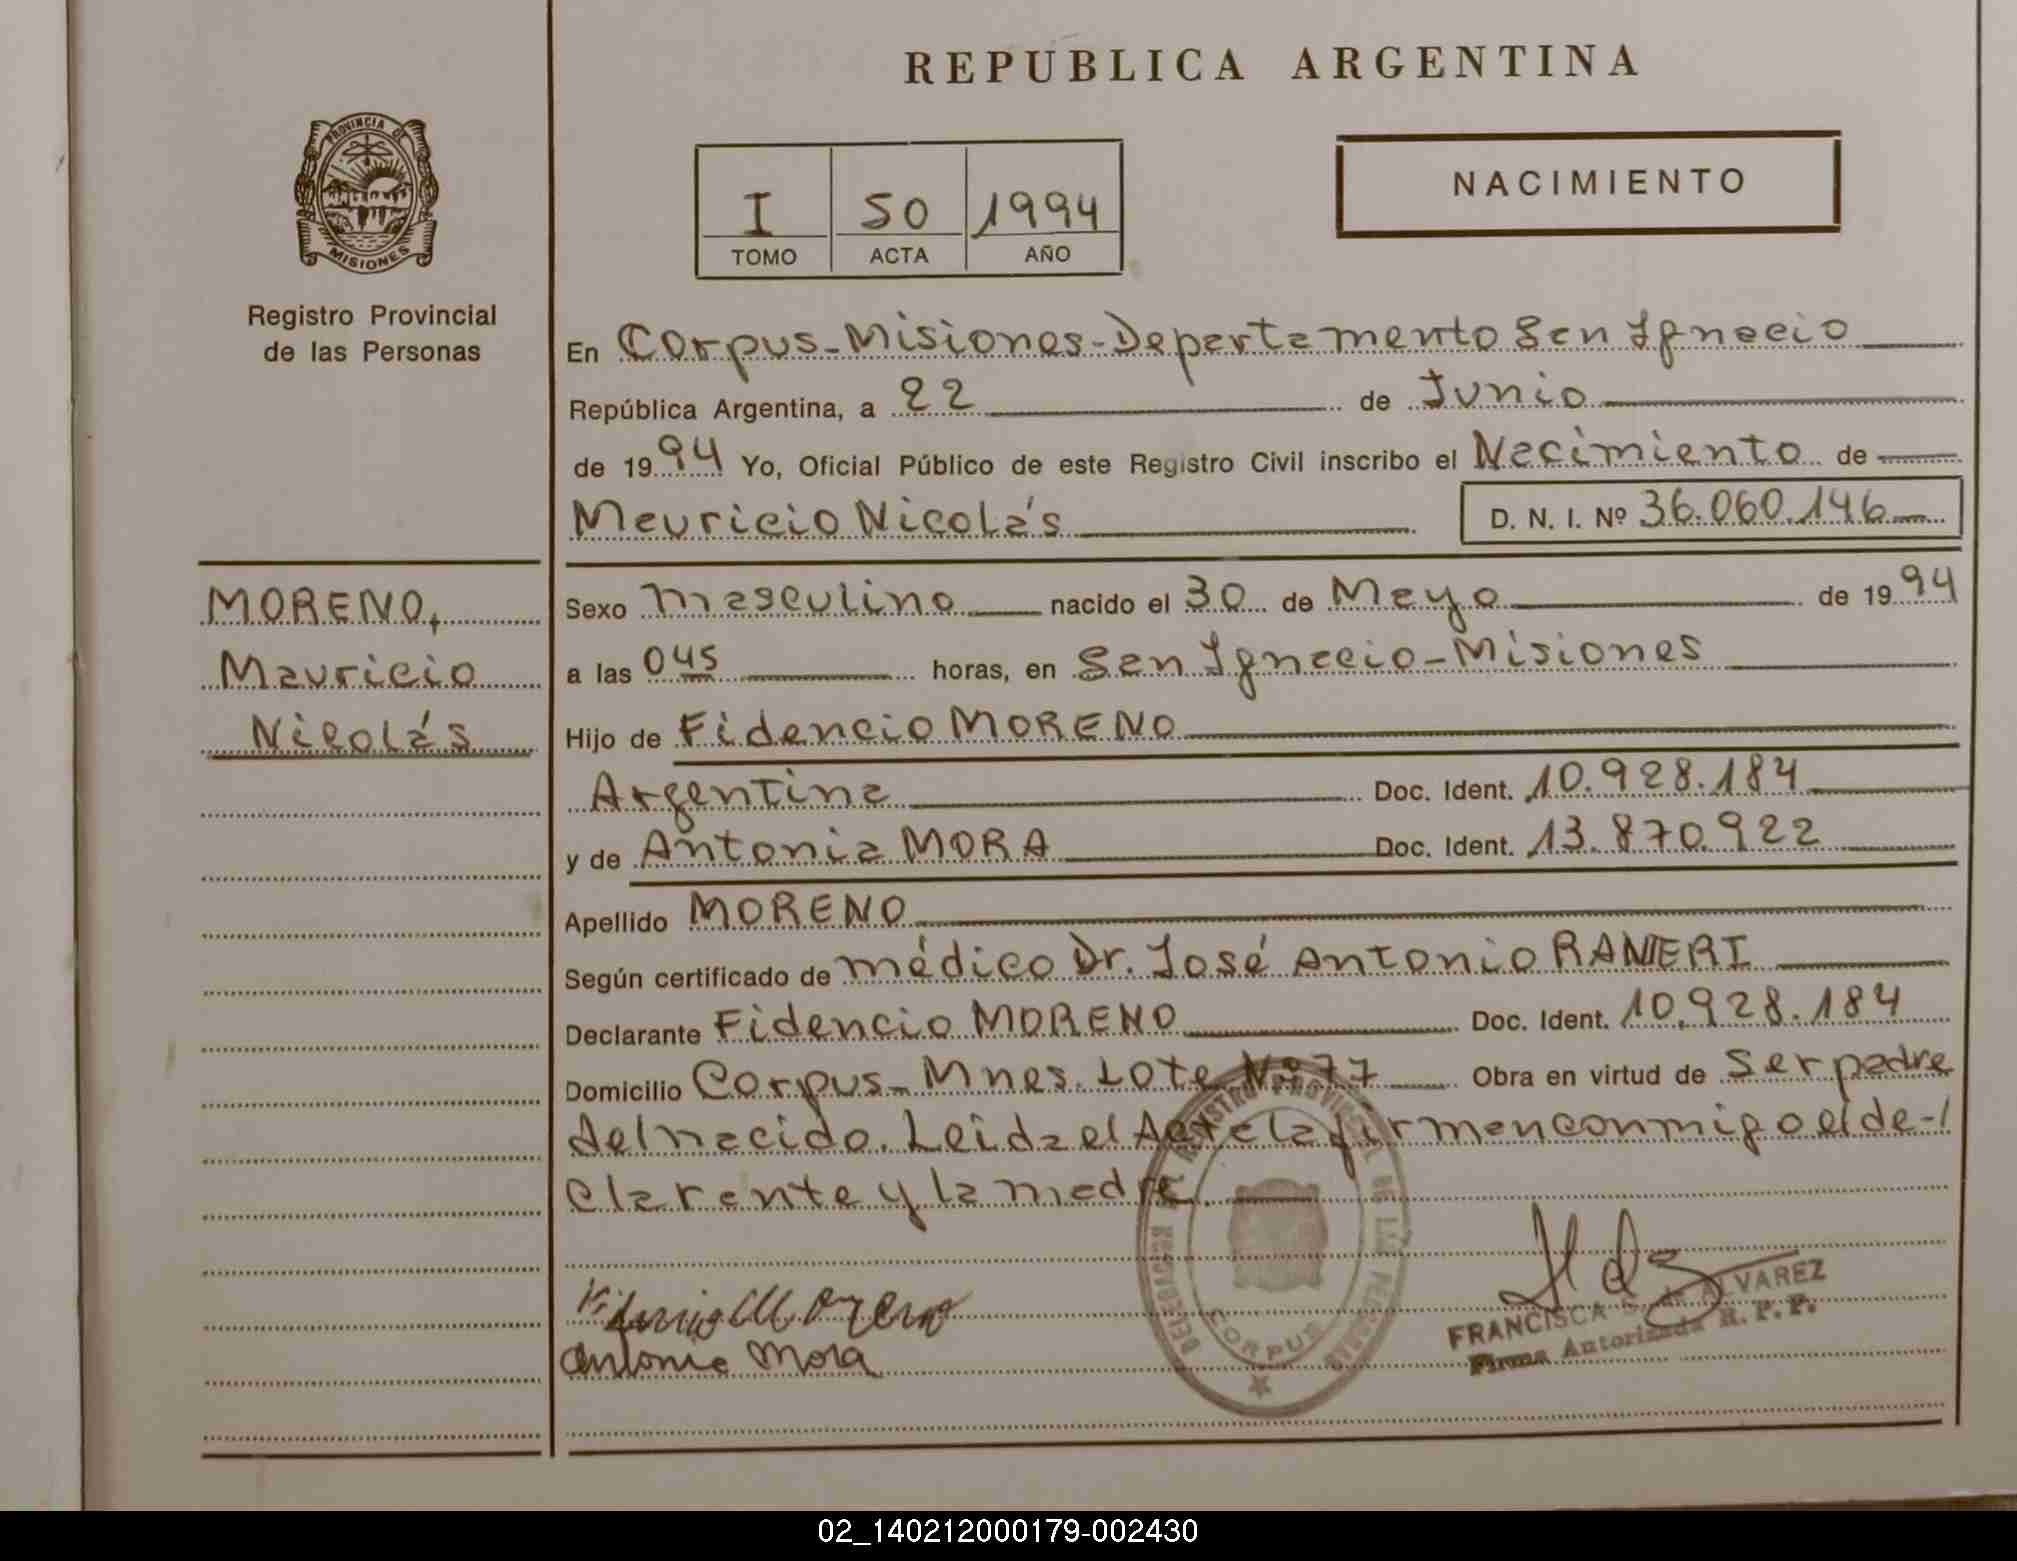 REPUBLICA ARGENTINA
PROVINCIA DE
MISIONES
Registro Provincial
de las Personas
I 50 1994
TOMO ACTA AÑO
NACIMIENTO
En Corpus-Misiones-Departamento San Ignacio
República Argentina, a 22 de Junio
de 1994 Yo, Oficial Público de este Registro Civil inscribo el Nacimiento de
Mauricio Nicolás D. N. I. Nº 36.060.146
MORENO,
Mauricio
Nicolás
Sexo masculino nacido el 30 de Mayo de 1994
a las 045 horas, en San Ignacio-Misiones
Hijo de Fidencio MORENO
Argentina Doc. Ident. 10.928.184
y de Antonia MORA Doc. Ident. 13.870.922
Apellido MORENO
Según certificado de médico Dr. José Antonio RANIERI
Declarante Fidencio MORENO Doc. Ident. 10.928.184
Domicilio Corpus-Mnes. Lote Nº 77 Obra en virtud de ser padre
del nacido. Leída el Acta la firman conmigo el de-
clarante y la madre.
DELEGACION DEL REGISTRO PROVINCIAL DE LAS PERSONAS
CORPUS
Fidencio Moreno
Antonia Mora
FRANCISCA ALVAREZ
Firma Autorizada R. P. P.
02_140212000179-002430